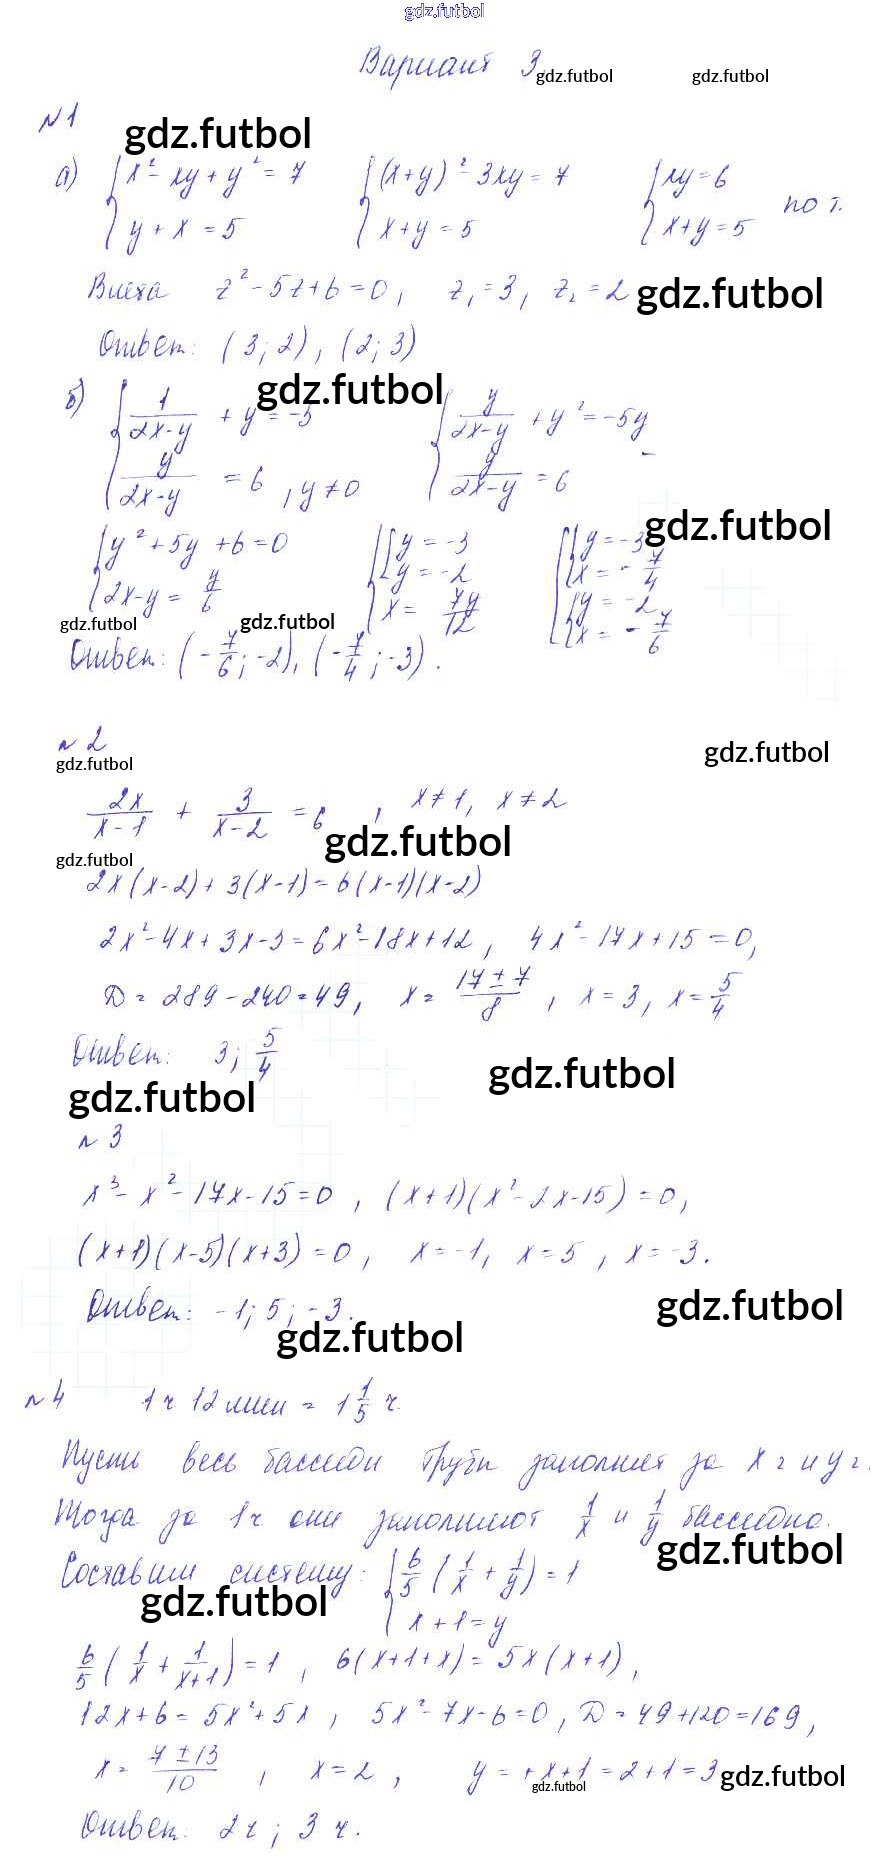 gdz.futbol
Вариант 3
gdz.futbol gdz.futbol
№1 gdz.futbol
а) { x² - xy + y² = 7 { (x+y)² - 3xy = 7 { xy = 6
y + x = 5 x+y = 5 x+y = 5 по т.
Виета z² - 5z + 6 = 0, z₁ = 3, z₂ = 2 gdz.futbol
Ответ: (3; 2), (2; 3)
gdz.futbol
б) { 1/(2x-y) + y = -5 { y/(2x-y) + y² = -5y
y/(2x-y) = 6, y ≠ 0 y/(2x-y) = 6
gdz.futbol
{ y² + 5y + 6 = 0 { [ y = -3 [ { y = -3
2x-y = y/6 y = -2 x = -7/4
x = 7y/12 { y = -2
x = -7/6
gdz.futbol gdz.futbol
Ответ: (-7/6; -2), (-7/4; -3).
№2
gdz.futbol gdz.futbol
2x/(x-1) + 3/(x-2) = 6, x ≠ 1, x ≠ 2
gdz.futbol
gdz.futbol
2x(x-2) + 3(x-1) = 6(x-1)(x-2)
2x² - 4x + 3x - 3 = 6x² - 18x + 12, 4x² - 17x + 15 = 0,
D = 289 - 240 = 49, x = (17 ± 7)/8, x = 3, x = 5/4
Ответ: 3; 5/4
gdz.futbol
gdz.futbol
№3
x³ - x² - 17x - 15 = 0, (x+1)(x² - 2x - 15) = 0,
(x+1)(x-5)(x+3) = 0, x = -1, x = 5, x = -3.
Ответ: -1; 5; -3.
gdz.futbol
gdz.futbol
№4 1ч 12 мин = 1 1/5 ч.
Пусть весь бассейн трубы заполнят за x ч и y ч.
Тогда за 1ч они заполняют 1/x и 1/y бассейна.
gdz.futbol
Составим систему: { 6/5 (1/x + 1/y) = 1
x + 1 = y
gdz.futbol
6/5 (1/x + 1/(x+1)) = 1, 6(x+1+x) = 5x(x+1),
12x + 6 = 5x² + 5x, 5x² - 7x - 6 = 0, D = 49 + 120 = 169,
x = (7 ± 13)/10, x = 2, y = +x+1 = 2+1 = 3
gdz.futbol gdz.futbol
Ответ: 2ч; 3ч.